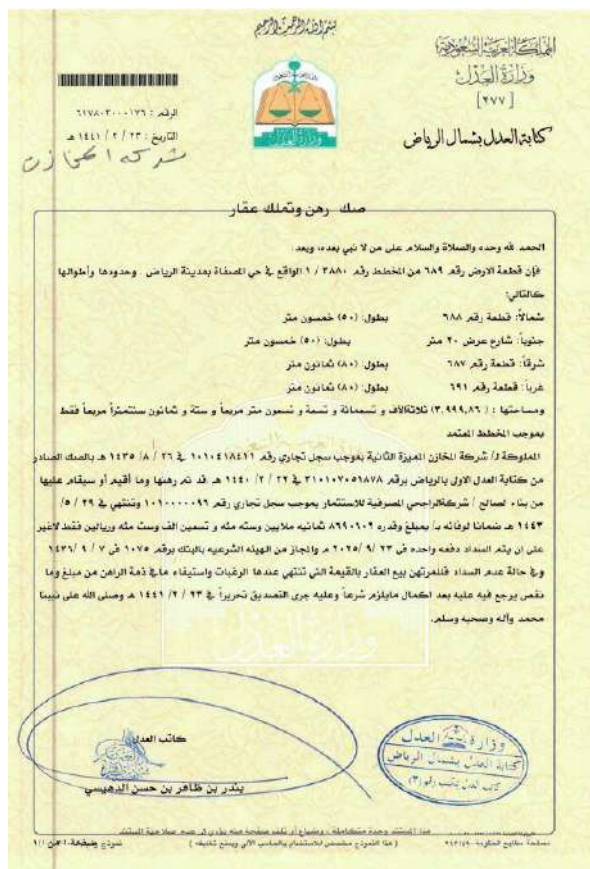 بسم الله الرحمن الرحيم
المملكة العربية السعودية
وزارة العدل
[٢٧٧]
كتابة العدل بشمال الرياض
وزارة العدل
الرقم : ٦١٧٨٠٣٠٠٠١٧٦
التاريخ : ٢٣ / ٢ / ١٤٤١ هـ
شركة المخازن
صك رهن وتملك عقار
الحمد لله وحده والصلاة والسلام على من لا نبي بعده، وبعد:
فإن قطعة الارض رقم ٦٨٩ من المخطط رقم ٣٨٨٠ / ١ الواقع في حي المصفاة بمدينة الرياض . وحدودها وأطوالها
كالتالي:
شمالاً: قطعة رقم ٦٨٨ بطول: (٥٠) خمسون متر
جنوباً: شارع عرض ٢٠ متر بطول: (٥٠) خمسون متر
شرقاً: قطعة رقم ٦٨٧ بطول: (٨٠) ثمانون متر
غرباً: قطعة رقم ٦٩١ بطول: (٨٠) ثمانون متر
ومساحتها : (٣,٩٩٩,٨٦) ثلاثةالاف و تسعمائة و تسعة و تسعون متر مربعاً و ستة و ثمانون سنتمتراً مربعاً فقط
بموجب المخطط المعتمد
المملوكة لـ/ شركة المخازن المميزة الثانية بموجب سجل تجاري رقم ١٠١٠٤١٨٤١١ في ٢٦ / ٨/ ١٤٣٥ هـ بالصك الصادر
من كتابة العدل الاولى بالرياض برقم ٣١٠١٠٧٠٥١٨٧٨ في ٢٢ / ٢/ ١٤٤٠ هـ قد تم رهنها وما أقيم أو سيقام عليها
من بناء لصالح / شركةالراجحي المصرفية للاستثمار بموجب سجل تجاري رقم ١٠١٠٠٠٠٠٩٦ وتنتهي في ٢٩ / ٥/
١٤٤٣ هـ ضمانا لوفائه بـ/ بمبلغ وقدره ٨٦٩٠٦٠٩ ثمانيه ملايين وسته مئه و تسعين الف وست مئه وريالين فقط لاغير
على ان يتم السداد دفعه واحده فى ٢٣ /٩ /٢٠٢٥ م والمجاز من الهيئه الشرعيه بالبنك برقم ١٠٧٥ فى ٧ / ٩ /١٤٣٦
وفي حالة عدم السداد فللمرتهن بيع العقار بالقيمة التي تنتهي عندها الرغبات واستيفاء مافي ذمة الراهن من مبلغ وما
نقص يرجع فيه عليه بعد اكمال مايلزم شرعاً وعليه جرى التصديق تحريراً في ٢٣ /٢ /١٤٤١ هـ وصلى الله على نبينا
محمد وآله وصحبه وسلم.
وزارة العدل
كاتب العدل
بندر بن ظافر بن حسن الدهيسي
وزارة العدل
كتابة العدل بشمال الرياض
هذا المستند وحدة متكاملة ، وضياع أو تلف صفحة منه يؤدي إلى عدم صلاحية المستند
( هذا النموذج مخصص للاستخدام بالحاسب الآلي ويمنع تغليفه )